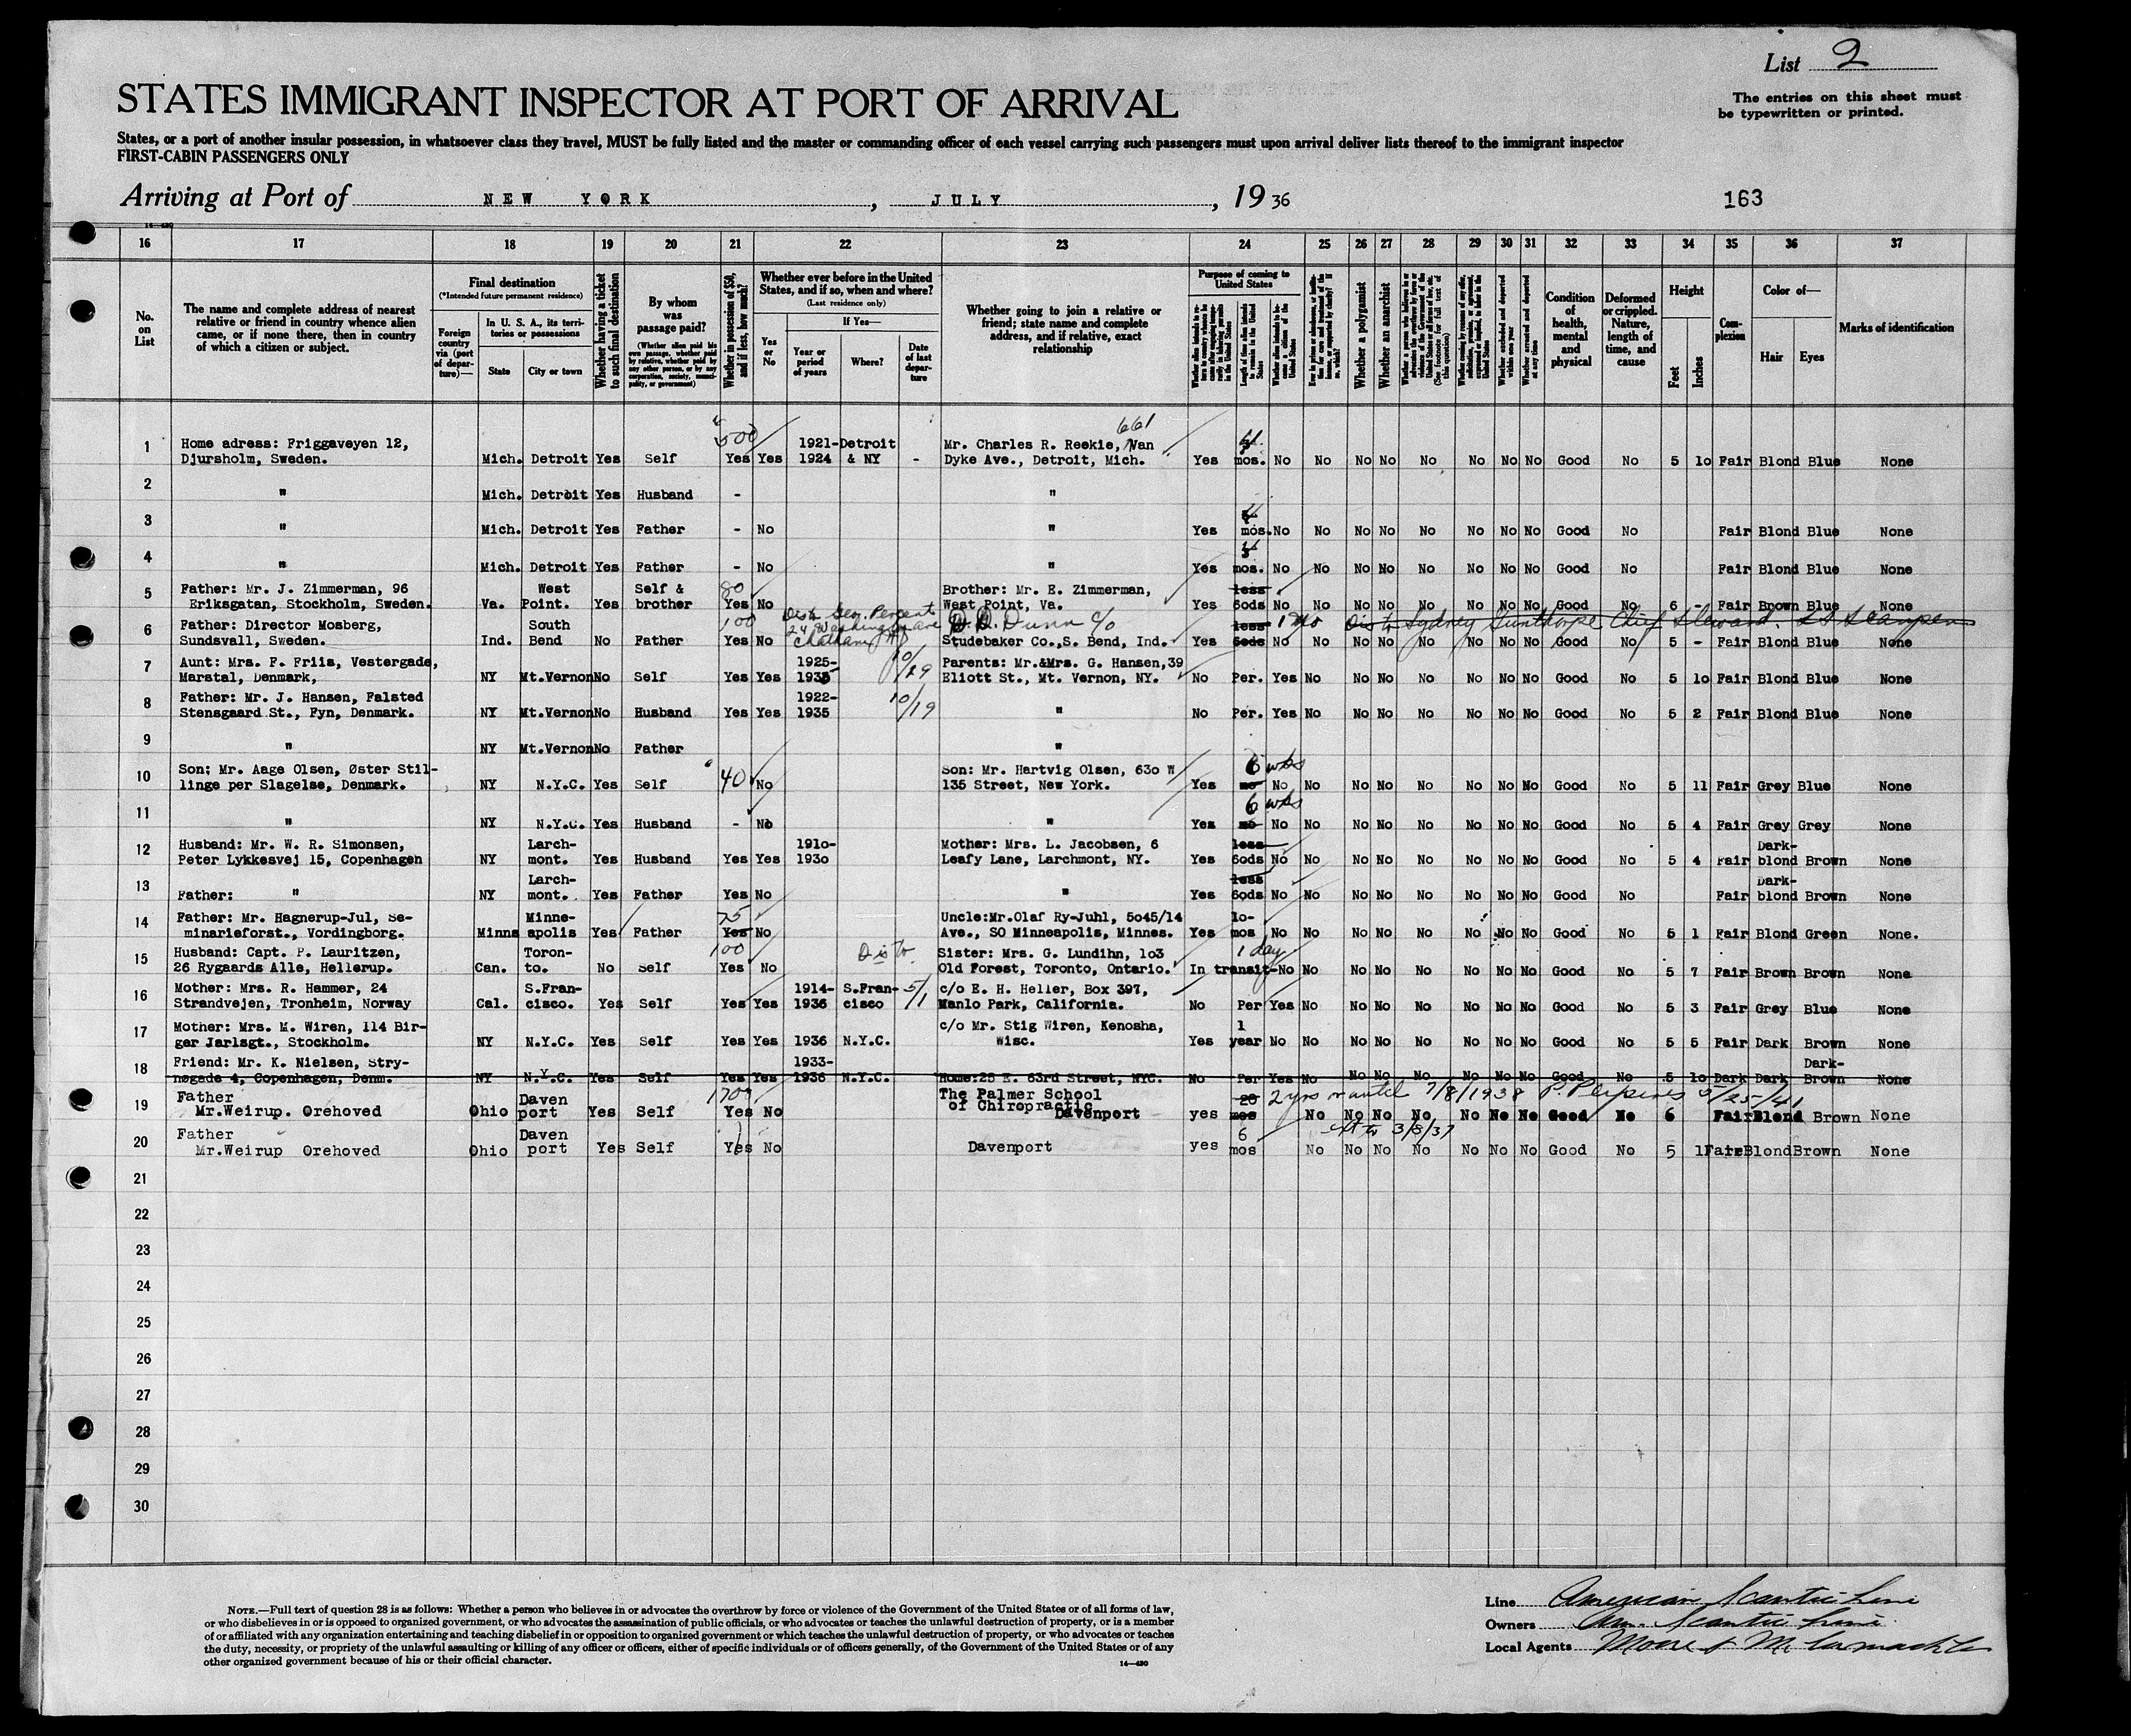 List 2
The entries on this sheet must
be typewritten or printed.
STATES IMMIGRANT INSPECTOR AT PORT OF ARRIVAL
States, or a port of another insular possession, in whatsoever class they travel, MUST be fully listed and the master or commanding officer of each vessel carrying such passengers must upon arrival deliver lists thereof to the immigrant inspector
FIRST-CABIN PASSENGERS ONLY
Arriving at Port of NEW YORK, JULY, 19 36 163
16 17 18 19 20 21 22 23 24 25 26 27 28 29 30 31 32 33 34 35 36 37
No. on List
The name and complete address of nearest
relative or friend in country whence alien
came, or if none there, then in country
of which a citizen or subject.
Final destination
(*Intended future permanent residence)
Foreign country via (port of departure)—
In U. S. A., its territories or possessions
State City or town
Whether having a ticket to such final destination
By whom was passage paid?
(Whether alien paid his own passage, whether paid by relative, whether paid by any other person, or by any corporation, society, municipality, or government)
Whether in possession of $50, and if less, how much?
Whether ever before in the United
States, and if so, when and where?
(Last residence only)
Yes or No
If Yes—
Year or period of years Where? Date of last departure
Whether going to join a relative or
friend; state name and complete
address, and if relative, exact
relationship
Purpose of coming to United States
Length of time alien intends to remain in the United States
Whether alien intends to become a citizen of the United States
Whether a polygamist
Whether an anarchist
Condition of health, mental and physical
Deformed or crippled. Nature, length of time, and cause
Height
Feet Inches
Complexion
Color of—
Hair Eyes
Marks of identification
500 661
1 Home adress: Friggaveyen 12, 1921- Detroit Mr. Charles R. Reekie, Van
Djursholm, Sweden. Mich. Detroit Yes Self Yes Yes 1924 & NY - Dyke Ave., Detroit, Mich. Yes mos. No No No No No No No No Good No 5 10 Fair Blond Blue None
2 " Mich. Detroit Yes Husband - "
3 " Mich. Detroit Yes Father - No " Yes mos. No No No No No No No No Good No Fair Blond Blue None
4 " Mich. Detroit Yes Father - No " Yes mos. No No No No No No No No Good No Fair Blond Blue None
5 Father: Mr. J. Zimmerman, 96 West Self & 80 Brother: Mr. E. Zimmerman, less
Eriksgatan, Stockholm, Sweden. Va. Point. Yes brother Yes No West Point, Va. Yes 60ds No No No No No No No No Good No 6 - Fair Brown Blue None
6 Father: Director Mosberg, South 100 24 Washington Ave Dunn c/o less 1 mo Sydney Chief Steward
Sundsvall, Sweden. Ind. Bend No Father Yes No Chatham Studebaker Co., S. Bend, Ind. Yes 60ds No No No No No No No No Good No 5 - Fair Blond Blue None
7 Aunt: Mrs. F. Friis, Vestergade, 1925- 10/29 Parents: Mr.&Mrs. G. Hansen,39
Marstal, Denmark, NY Mt.Vernon No Self Yes Yes 1935 Eliott St., Mt. Vernon, NY. No Per. Yes No No No No No No No Good No 5 10 Fair Blond Blue None
8 Father: Mr. J. Hansen, Falsted 1922- 10/19
Stensgaard St., Fyn, Denmark. NY Mt.Vernon No Husband Yes Yes 1935 " No Per. Yes No No No No No No No Good No 5 2 Fair Blond Blue None
9 " NY Mt.Vernon No Father "
10 Son: Mr. Aage Olsen, Øster Stil- 40 Son: Mr. Hartvig Olsen, 630 W 6 wks
linge per Slagelse, Denmark. NY N.Y.C. Yes Self No 135 Street, New York. Yes mo No No No No No No No No Good No 5 11 Fair Grey Blue None
6 wks
11 " NY N.Y.C. Yes Husband - No " Yes mo No No No No No No No No Good No 5 4 Fair Grey Grey None
12 Husband: Mr. W. R. Simonsen, Larch- 1910- Mother: Mrs. L. Jacobsen, 6 less Dark-
Peter Lykkesvej 15, Copenhagen NY mont. Yes Husband Yes Yes 1930 Leafy Lane, Larchmont, NY. Yes 60ds No No No No No No No No Good No 5 4 Fair blond Brown None
13 Larch- less Dark-
Father: " NY mont. Yes Father Yes No " Yes 60ds No No No No No No No No Good No Fair blond Brown None
14 Father: Mr. Hagnerup-Jul, Se- Minne- 75 Uncle:Mr.Olaf Ry-Juhl, 5045/14 10-
minarieforst., Vordingborg. Minns apolis Yes Father Yes No Ave., SO Minneapolis, Minnes. Yes mos No No No No No No No No Good No 5 1 Fair Blond Green None.
15 Husband: Capt. P. Lauritzen, Toron- 100 Dis to Sister: Mrs. G. Lundihn, 103 1 day
26 Rygaards Alle, Hellerup. Can. to. No Self Yes No Old Forest, Toronto, Ontario. In transit-No No No No No No No No Good No 5 7 Fair Brown Brown None
16 Mother: Mrs. R. Hammer, 24 S.Fran- 1914- S.Fran- 5/1 c/o E. H. Heller, Box 397,
Strandvejen, Tronheim, Norway Cal. cisco. Yes Self Yes Yes 1936 cisco Manlo Park, California. No Per Yes No No No No No No No Good No 5 3 Fair Grey Blue None
17 Mother: Mrs. M. Wiren, 114 Bir- c/o Mr. Stig Wiren, Kenosha, 1
ger Jarlsgt., Stockholm. NY N.Y.C. Yes Self Yes Yes 1936 N.Y.C. Wisc. Yes year No No No No No No No No Good No 5 5 Fair Dark Brown None
18 Friend: Mr. K. Nielsen, Stry- 1933- Dark-
nøgade 4, Copenhagen, Denm. NY N.Y.C. Yes Self Yes Yes 1936 N.Y.C. Home:25 E. 63rd Street, NYC. No Per Yes No No No No No No No Good No 5 10 Dark Dark Brown None
19 Father Daven 1700 The Palmer School 20 2 yrs or until 7/8/1938 5/25/41
Mr.Weirup. Orehoved Ohio port Yes Self Yes No of Chiropractic Davenport yes mos No No No No No No No Good No 6 Fair Blond Brown None
20 Father Daven 6 3/8/37
Mr.Weirup Orehoved Ohio port Yes Self Yes No Davenport yes mos No No No No No No No Good No 5 1 Fair Blond Brown None
21
22
23
24
25
26
27
28
29
30
NOTE.—Full text of question 28 is as follows: Whether a person who believes in or advocates the overthrow by force or violence of the Government of the United States or of all forms of law,
or who disbelieves in or is opposed to organized government, or who advocates the assassination of public officials, or who advocates or teaches the unlawful destruction of property, or is a member
of or affiliated with any organization entertaining and teaching disbelief in or opposition to organized government or which teaches the unlawful destruction of property, or who advocates or teaches
the duty, necessity, or propriety of the unlawful assaulting or killing of any officer or officers, either of specific individuals or of officers generally, of the Government of the United States or of any
other organized government because of his or their official character.
14—430
Line American Scantic Line
Owners Am. Scantic Line
Local Agents Moore & McCormack Co